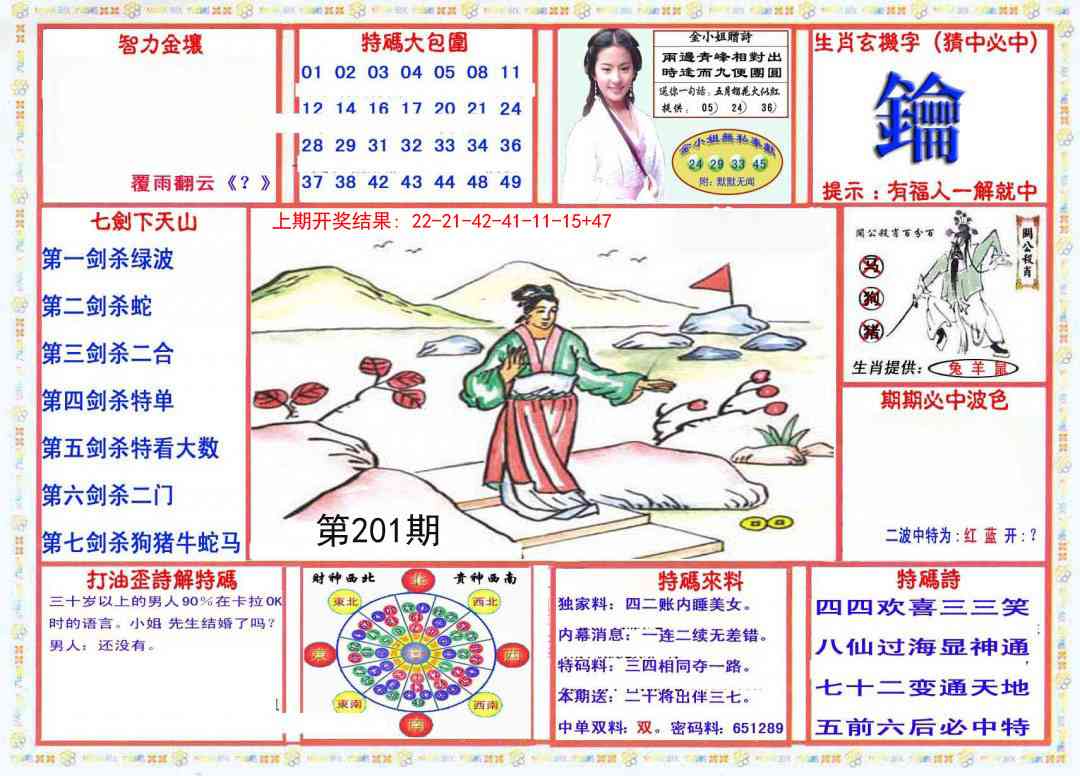 智力金壤
覆雨翻云《？》
特碼大包圍
01 02 03 04 05 08 11
12 14 16 17 20 21 24
28 29 31 32 33 34 36
37 38 42 43 44 48 49
金小姐贈詩
兩邊青峰相對出
時逢而九便團圓
送你一句话：五月榴花火似红
提供： 05） 24） 36）
金小姐無私奉獻
24 29 33 45
附：默默无闻
生肖玄機字（猜中必中）
鑰
提示：有福人一解就中
七劍下天山
第一剑杀绿波
第二剑杀蛇
第三剑杀二合
第四剑杀特单
第五剑杀特看大数
第六剑杀二门
第七剑杀狗猪牛蛇马
上期开奖结果：22-21-42-41-11-15+47
第201期
關公殺肖百分百
關公殺肖
马
狗
猪
生肖提供： 兔 羊 鼠
期期必中波色
二波中特为：红 蓝 开：？
打油歪詩解特碼
三十岁以上的男人90%在卡拉OK
时的语言。小姐 先生结婚了吗？
男人：还没有。
財神西北
貴神西南
北
東北
西北
東
西
東南
西南
南
特碼來料
独家料：四二账内睡美女。
内幕消息：一连二续无差错。
特码料：三四相同夺一路。
本期送：二十将出伴三七。
中单双料：双。密码料：651289
特碼詩
四四欢喜三三笑
八仙过海显神通
七十二变通天地
五前六后必中特